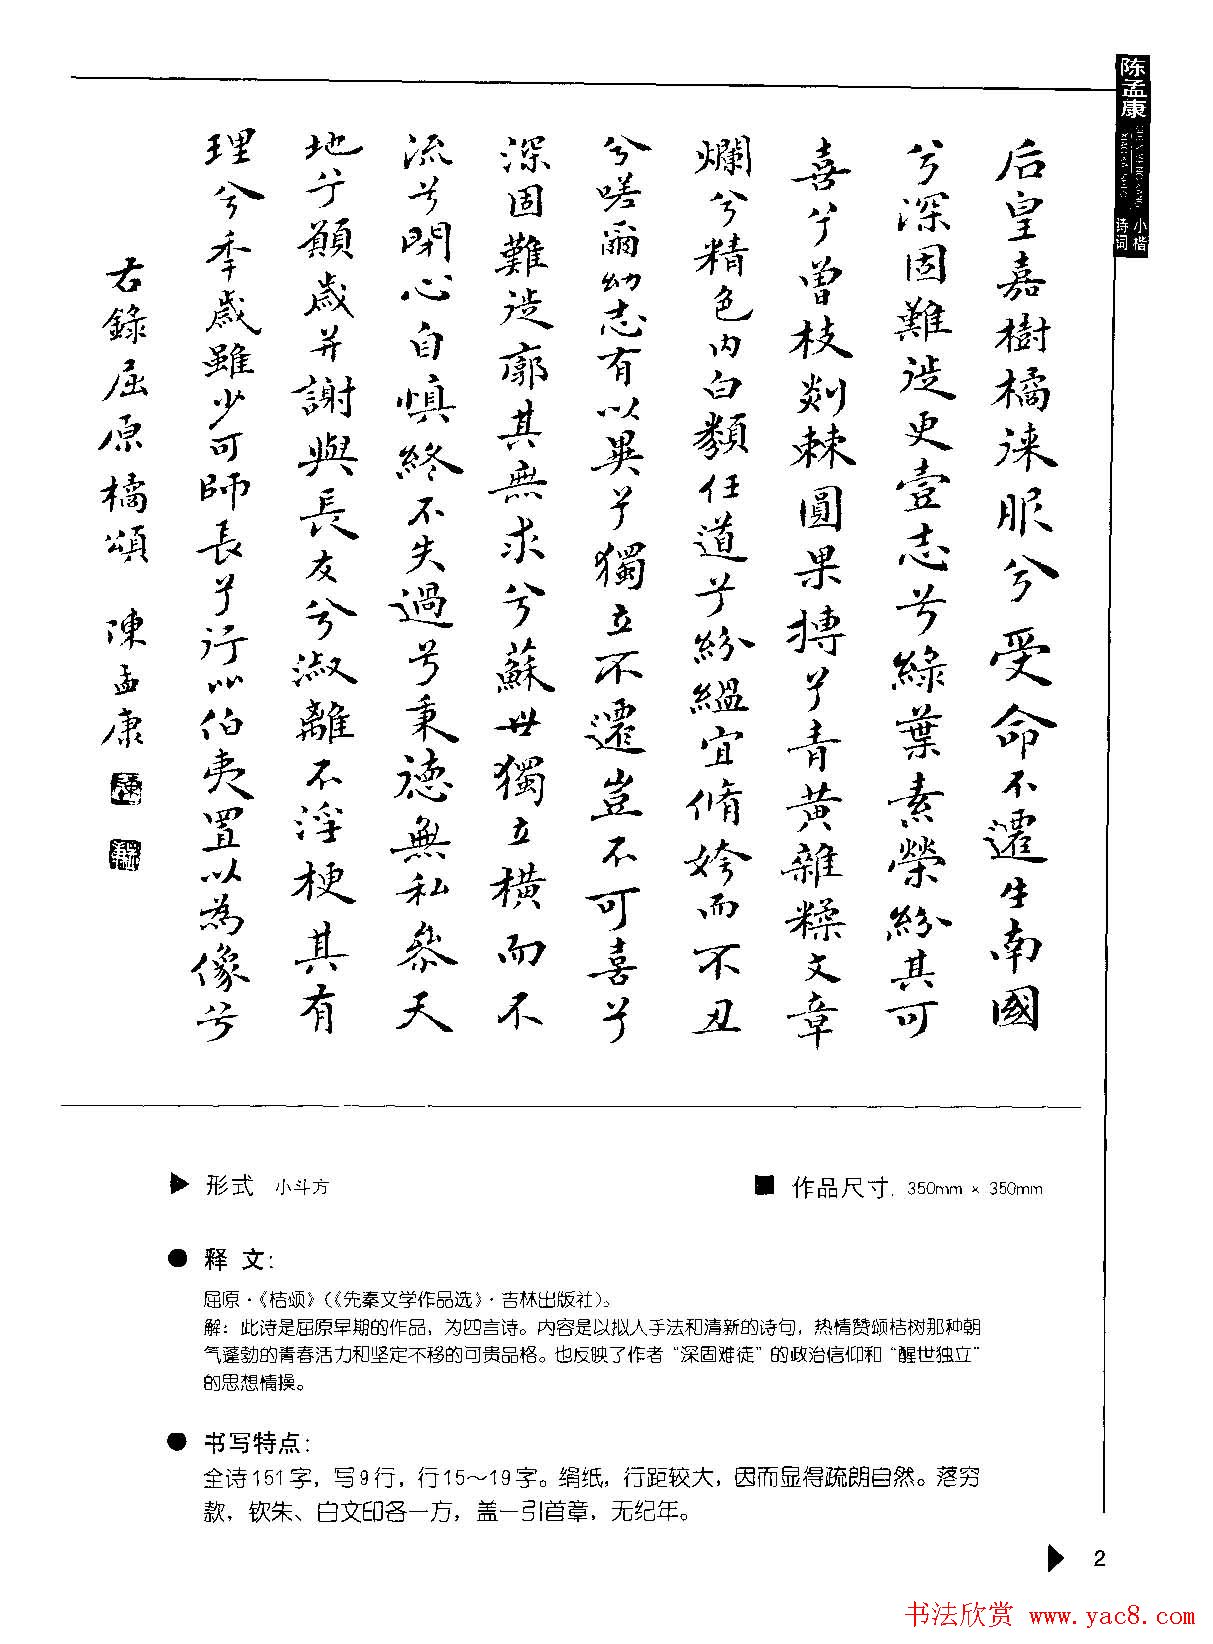 陈孟康
小楷
诗词
后皇嘉樹橘徠服兮受命不遷生南國
兮深固難徙更壹志兮綠葉素榮紛其可
喜兮曾枝剡棘圓果摶兮青黃雜糅文章
爛兮精色內白類任道兮紛緼宜脩姱而不丑
兮嗟爾幼志有以異兮獨立不遷豈不可喜兮
深固難徙廓其無求兮蘇世獨立橫而不
流兮閉心自慎終不失過兮秉德無私參天
地兮願歲并謝與長友兮淑離不淫梗其有
理兮季歲雖少可師長兮行以伯夷置以為像兮
右錄屈原橘頌 陳孟康
形式 小斗方
作品尺寸. 350mm × 350mm
释 文：
屈原·《桔颂》（《先秦文学作品选》·吉林出版社）。
解：此诗是屈原早期的作品，为四言诗。内容是以拟人手法和清新的诗句，热情赞颂桔树那种朝
气蓬勃的青春活力和坚定不移的可贵品格。也反映了作者“深固难徒”的政治信仰和“醒世独立”
的思想情操。
书写特点：
全诗151字，写9行，行15～19字。绢纸，行距较大，因而显得疏朗自然。落穷
款，钦朱、白文印各一方，盖一引首章，无纪年。
2
书法欣赏 www.yac8.com